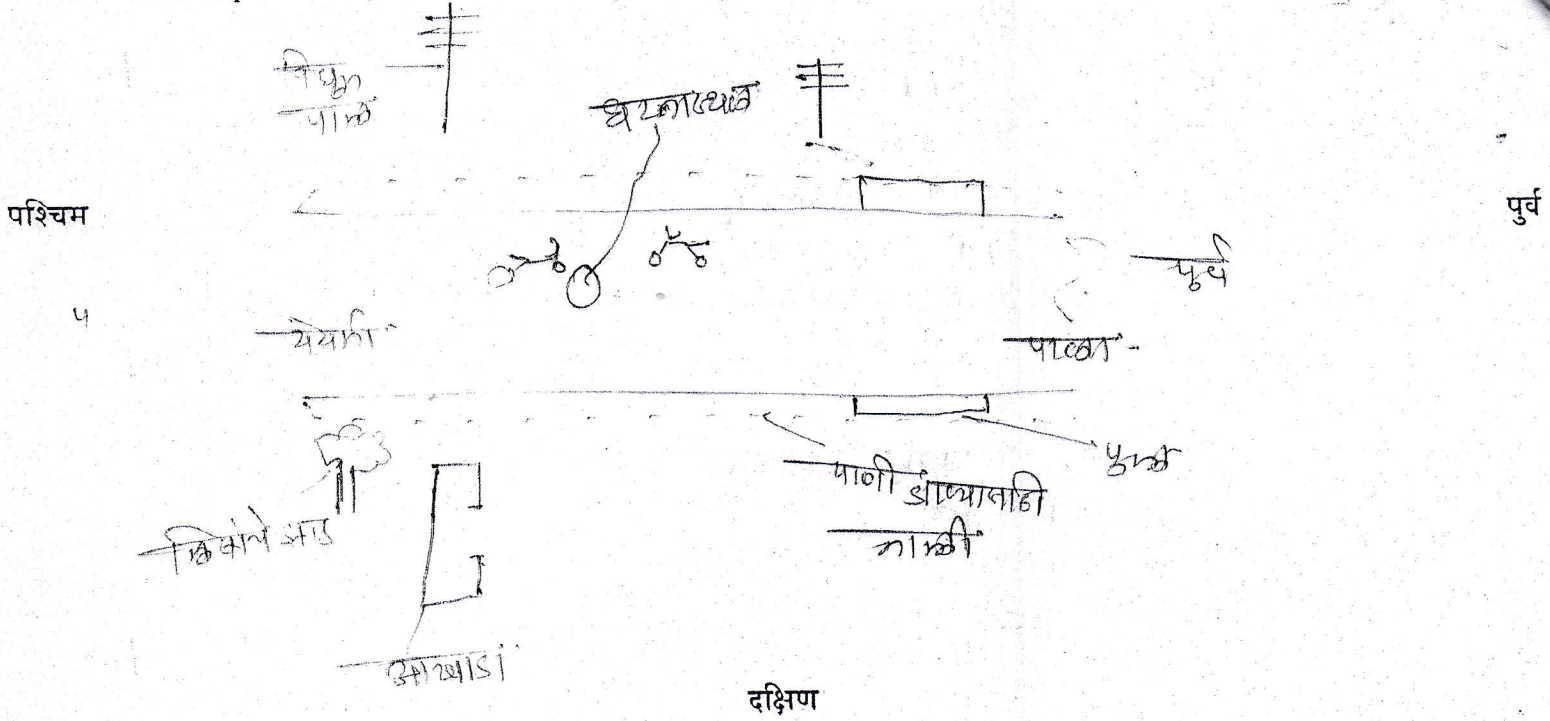 विद्युत
पोल
घटनास्थळ
पश्चिम
पुर्व
पूर्व
प
येवती
पाळा -
पुल
पाणी
नाली
लिंबाचे झाड
आखाडा
दक्षिण